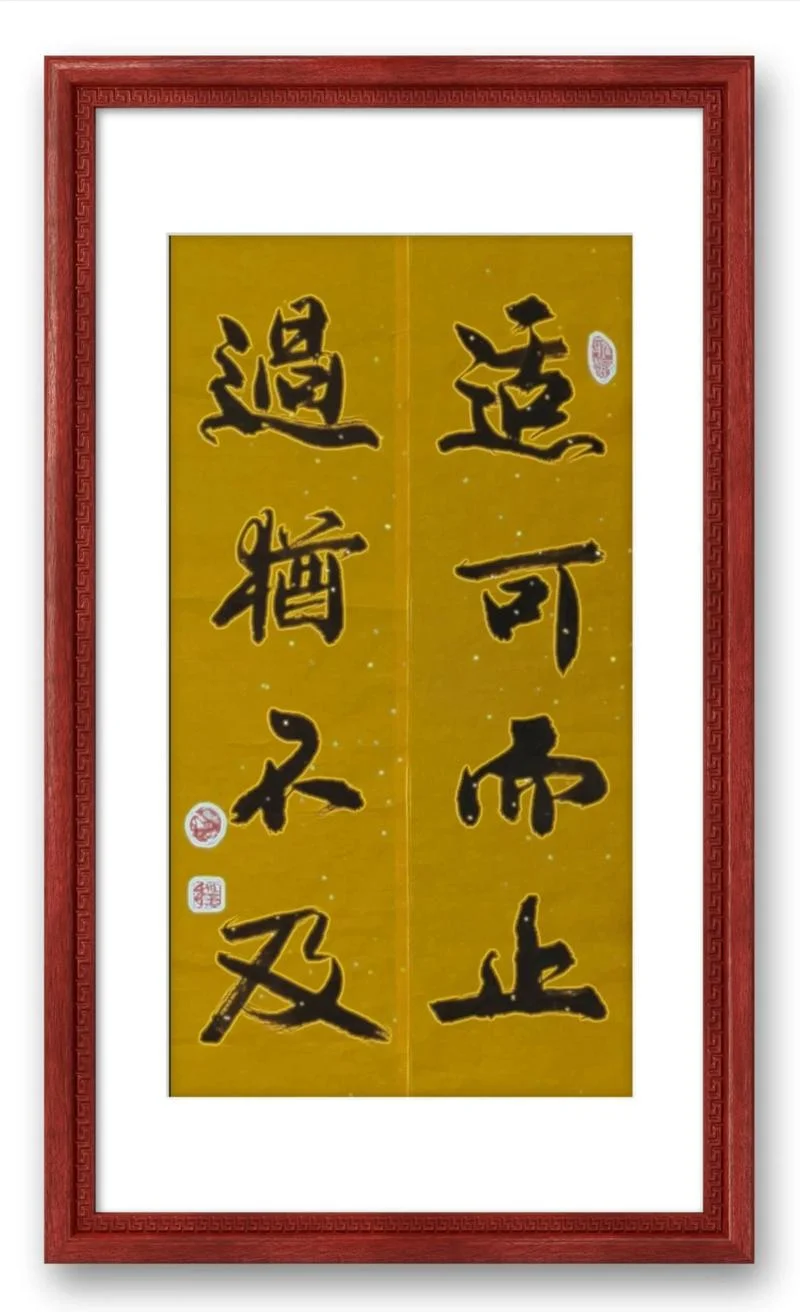 适可而止
過猶不及